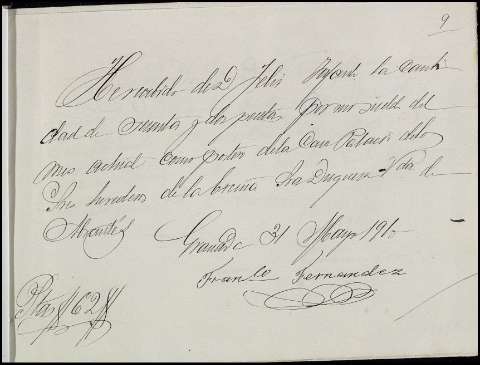 9
He recibido de D. Felix Infante la canti
dad de sesenta y dos pesetas por mi sueldo del
mes actual como portero de la Casa Palacio de los
Sres herederos de la Excma Sra Duquesa Vda de
Granada 31 Mayo 191
Franco Fernandez
Ptas #62#